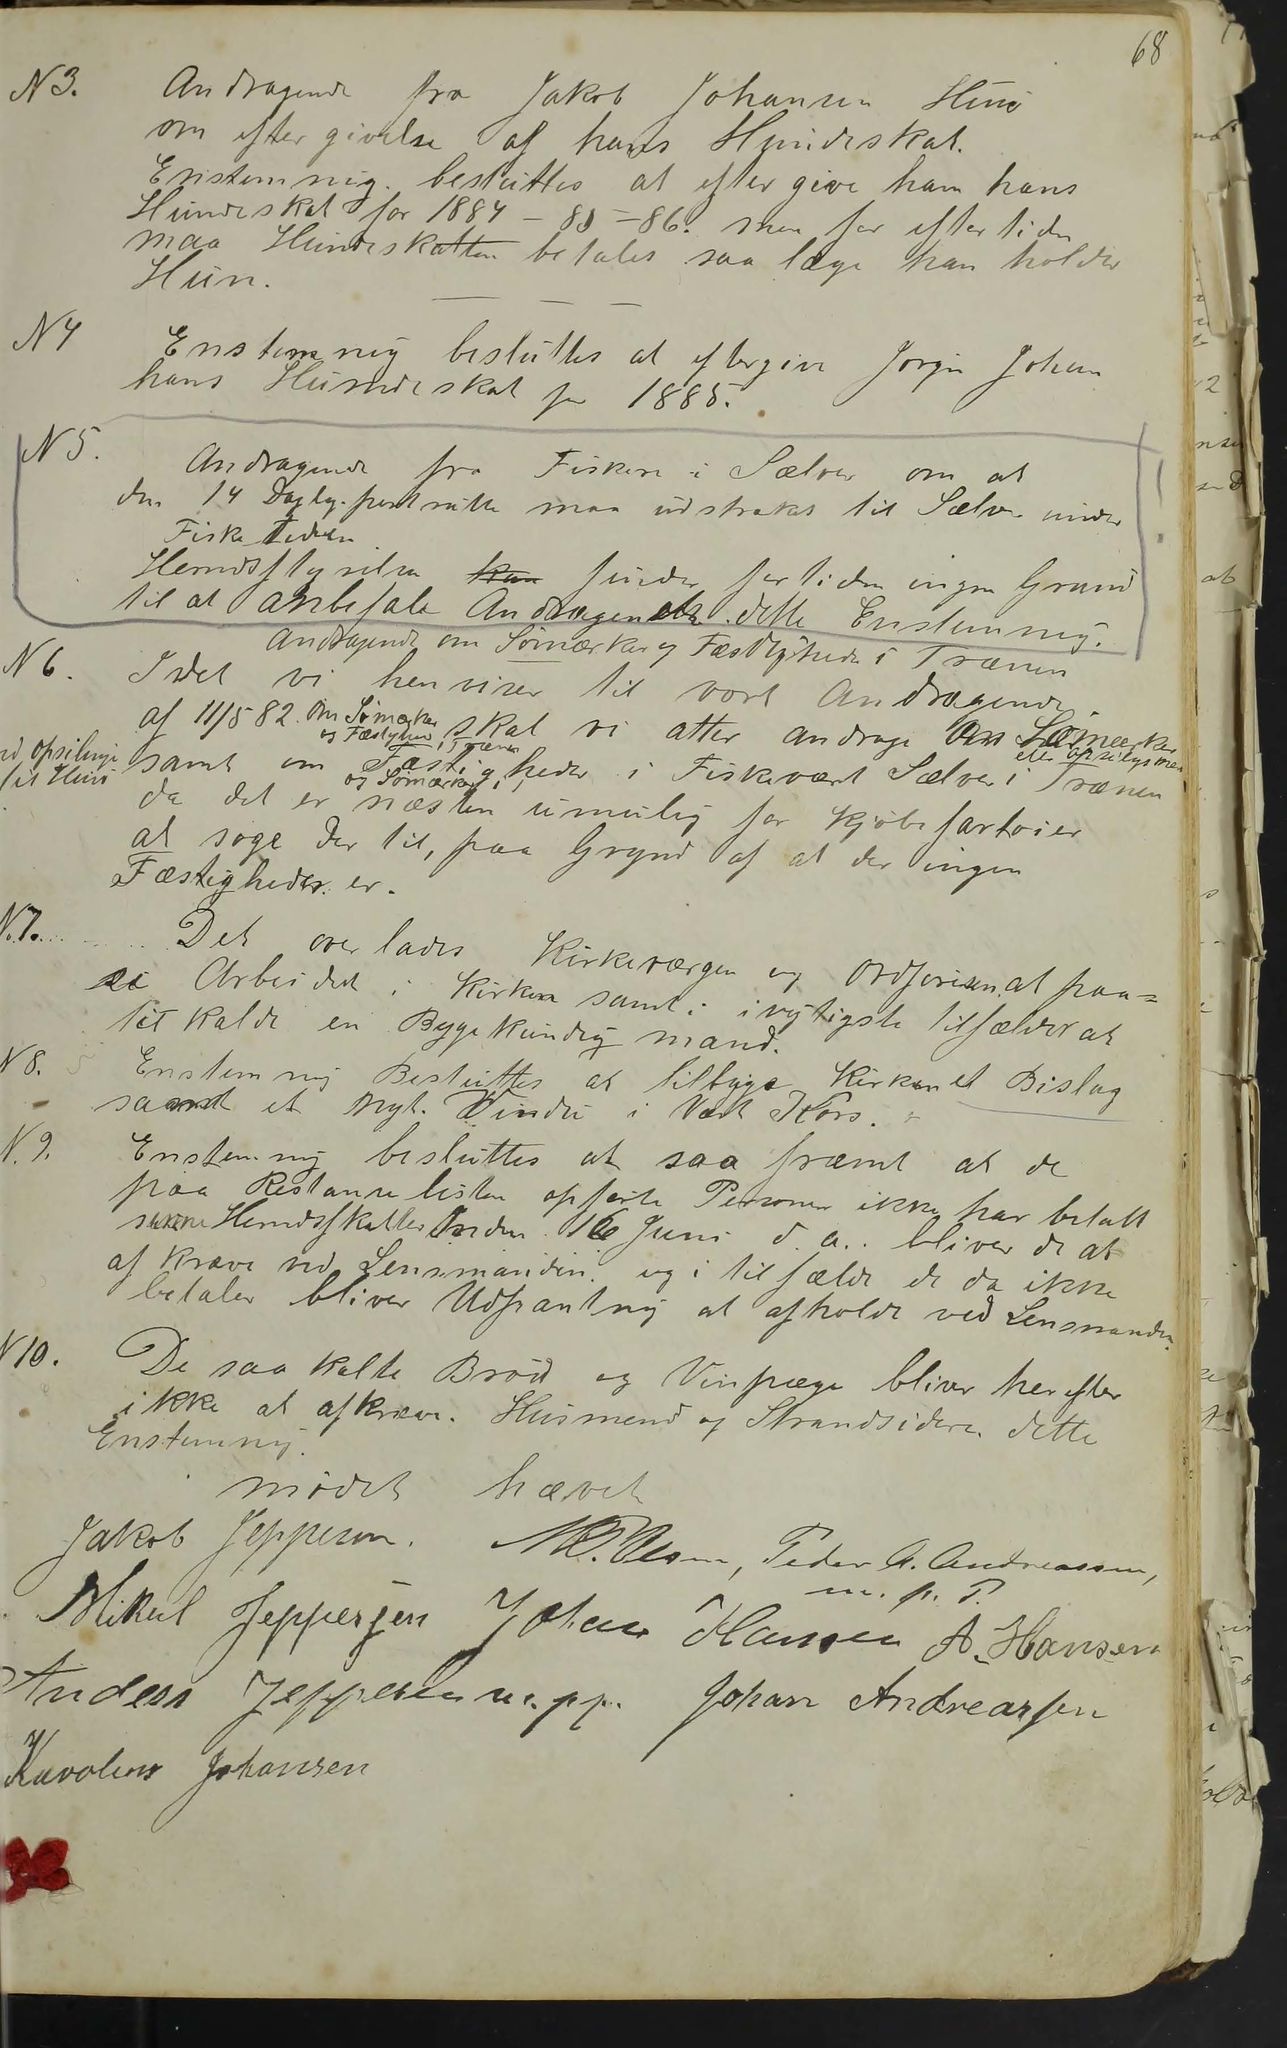 68
N 3. Andragende fra Jakob Johansen Husø
om efter givelse af hans Hundeskat.
Enstemmig. besluttes at efter give ham hans
Hundeskat for 1884 – 85 – 86. men for eftertiden
maa Hundeskatten betales saa læge han holder
Hun.
N 4 Enstemmig besluttes at eftergive Jørgen Johan
hans Hundeskat for 1885.
N 5. Andragende fra Fiskere i Sælver om at
den 14 Daglig. postrutte maa udstrækes til Sælver under
Fiske Tiden
Herredsstyrelsen kan finder for tiden ingen Grund
til at anbefale Andragendet. dette Enstemmig.
Andragende om Sømærker og Fæstigheder i Trænen
N 6. Idet vi hen viser til vort Andragende
af 11/5 82. om Sømærker
og Fæstigheder i Trænen skal vi atter andrage om Sømærker
samt om Fæstigheder i Fiskevært Sælver i Trænen
og Sømærker
da det er næsten umulig for Kjøbefartøier
at søge der til, paa Grund af at der ingen
Fæstigheder. er.
N. 7. Det over lades Kirkeværgen og Ordføreren at paa=
se Arbeidet i Kirken samt i vigtigste tilfælder at
til kalde en Bygekundig mand.
N 8. Enstemmig Besluttes at tilbyge Kirken et Bislag
samt et Nyt. Vindu i Vest Kors.
N. 9. Enstemmig besluttes at saa fræmt at de
paa Restanselisten opførte Personer ikke har betalt
sinne Herredsskatter inden 16 Juni d. a.. bliver de at
af kræve ved Lensmanden. og i tilfælde de da ikke
betaler bliver Udpantning at afholde ved Lensmanden.
N 10. De saa kalte Brød og Vinpæge bliver herefter
ikke at afkræve. Husmænd og Strandsidere. dette
Enstemmig.
mødet hævet
Jakob Jeppesen. Peder A. Andreassen,
m. p. P.
Mikal Jeppesen Johan Hansen A. Hansen
Anders Jeppesen m. p.p. Johan Andreassen
Karolius Johansen